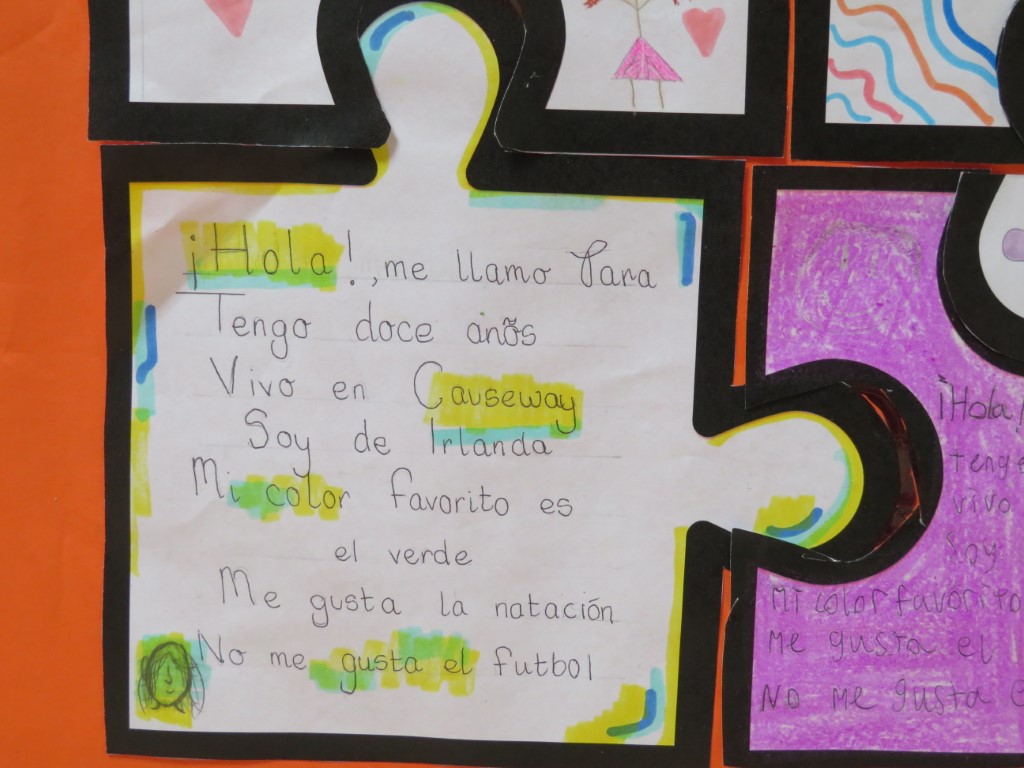 ¡Hola!, me llamo
Tengo doce anõs
Vivo en Causeway
Soy de Irlanda
Mi color favorito es
el verde
Me gusta la natación
No me gusta el futbol
¡Hola!
vivo
Soy
Mi color favorito
Me gusta el
No me gusta